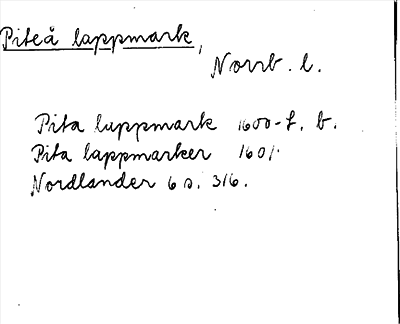 Piteå lappmark,
Norrb. l.
Pita luppmark 1600-t. b.
Pita lappmarker 1601.
Nordlander 6 s. 316.